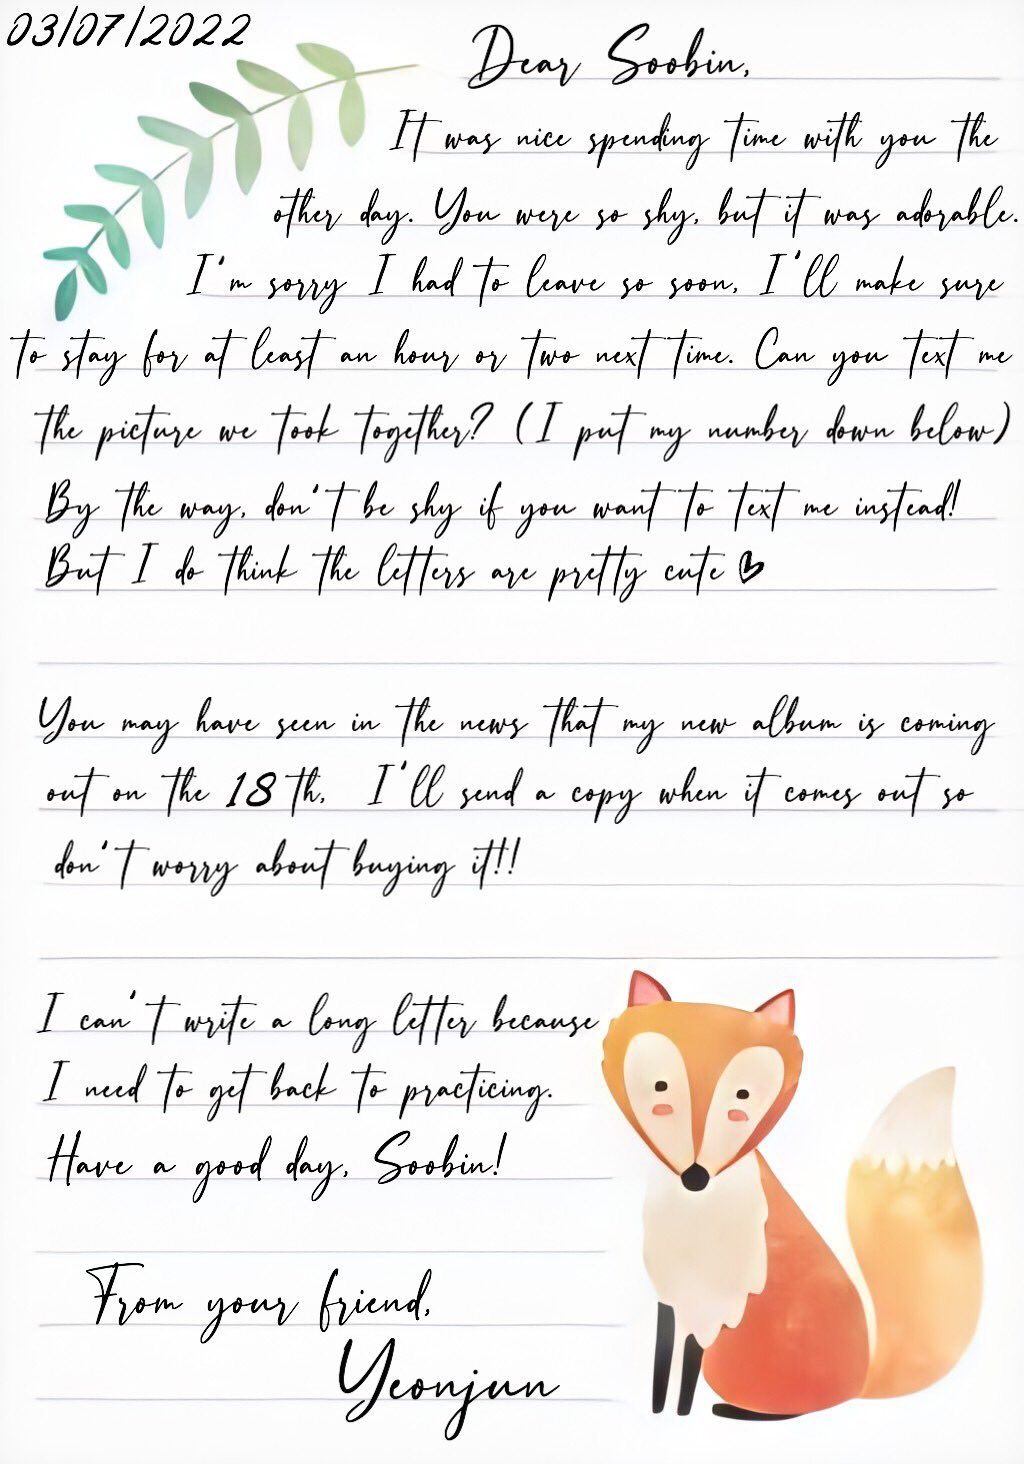 03/07/2022
Dear Soobin,
It was nice spending time with you the
other day. You were so shy, but it was adorable.
I'm sorry I had to leave so soon, I'll make sure
to stay for at least an hour or two next time. Can you text me
the picture we took together? (I put my number down below)
By the way, don't be shy if you want to text me instead!
But I do think the letters are pretty cute ♡
You may have seen in the news that my new album is coming
out on the 18th, I'll send a copy when it comes out so
don't worry about buying it!!
I can't write a long letter because
I need to get back to practicing.
Have a good day, Soobin!
From your friend,
Yeonjun